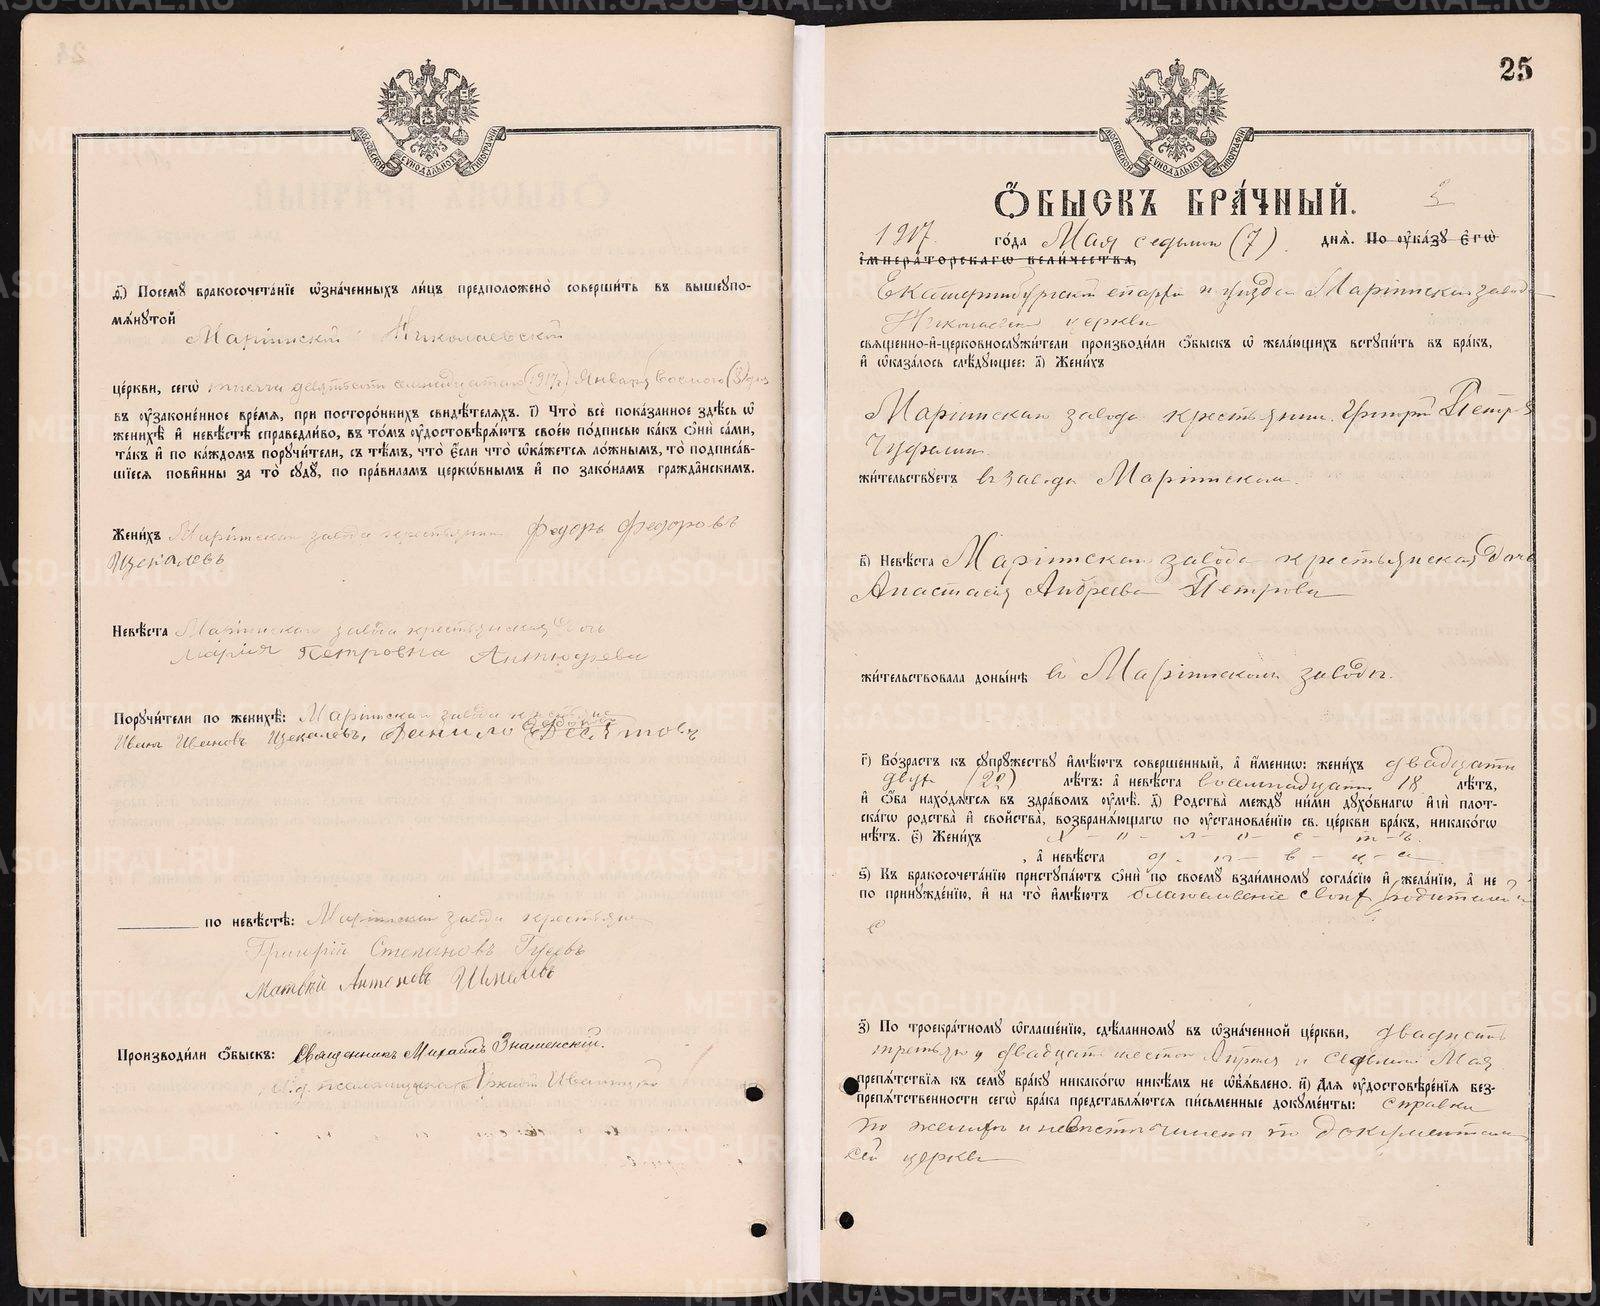 д҃) Посемꙋ бракосочетанїе ѡзначенныхъ лицъ предположено совершить въ вышеꙋпо-
мѧнꙋтой
Марiинской Николаевской
церкви, сегѡ тысяча девятьсотъ семнадцатаго (1917) Января восьмого (8) дня
въ ꙋзаконенное времѧ, при постороннихъ свидѣтелѧхъ. ї) Что всё показанное здѣсь ѡ
женихѣ и невѣстѣ справедливо, въ томъ ꙋдостовѣрѧютъ своею подписью какъ ѻни сами,
такъ и по каждомъ порꙋчители, съ тѣмъ, что если что ѡкажетсѧ ложнымъ, то подписав-
шїесѧ повинны за то сꙋдꙋ, по правиламъ церковнымъ и по законамъ гражданскимъ.
Женихъ Марiинскаго завода крестьянин Федоръ Федоровъ
Щекалевъ
Невѣста Марiинскаго завода крестьянская дочь
Мария Петровна Антюфеева
Порꙋчители по женихѣ: Марiинскаго завода крестьяне
Иванъ Ивановъ Щекалевъ, Данило
по невѣстѣ: Марiинскаго завода крестьяне
Григорiй Степановъ Гусевъ
Матвѣй Антоновъ
Производили ѻбыскъ: Священникъ Михаилъ Знаменскiй.
И.д. псаломщика
25
МОСКОВСКОЙ СѴНОДАЛЬНОЙ ТИПОГРАФІИ
Ѻбыскъ брачный.
1917 года Мая седьмого (7) днѧ. По ꙋказꙋ єгѡ
императорскагѡ величества,
Екатеринбургской епархiи и уезда Марiинскаго завода
Николаевской церкви
свѧщенно-и-церковнослꙋжители производили ѻбыскъ ѡ желающихъ встꙋпить въ бракъ,
и ѡказалось слѣдꙋющее: а҃) Женихъ
Марiинскаго завода крестьянин Григорiй Петровъ
жительствꙋетъ въ заводѣ Марiинском.
в҃) Невѣста Марiинскаго завода крестьянская дочь
Анастасiя Андреева Петрова
жительствовала донынѣ въ Марiинскомъ заводѣ.
г҃) Возрастъ къ сꙋпрꙋжествꙋ имѣютъ совершенный, а именнѡ: женихъ двадцати
двухъ (22) лѣтъ: а невѣста восемнадцати 18 лѣтъ,
и ѻба находѧтсѧ въ здравомъ ꙋмѣ. д҃) Родства междꙋ ними дꙋховнагѡ или плот-
скагѡ родства и свойства, возбранѧющагѡ по ꙋстановленїю св. церкви бракъ, никакогѡ
нѣтъ. є҃) Женихъ х - о - л - о - с - т - ъ.
, а невѣста д - ѣ - в - и - ц - а
ѕ҃) Къ бракосочетанїю пристꙋпаютъ ѻни по своемꙋ взаимномꙋ согласїю и желанїю, а не
по принꙋжденїю, и на то имѣютъ благословенiе своихъ родителей
з҃) По троекратномꙋ ѡглашенїю, сдѣланномꙋ въ ѡзначенной церкви, двадцать
третьяго двадцать шестого Апреля и седьмого Мая
препѧтствїѧ къ семꙋ бракꙋ никакогѡ никѣмъ не ѡбъѧвлено. и҃) Длѧ ꙋдостовѣренїѧ без-
препѧтственности сегѡ брака представлѧютсѧ письменные докꙋменты: справки
о женихѣ и невѣстѣ по документам
сей церкви
METRIKI.GASO-URAL.RU